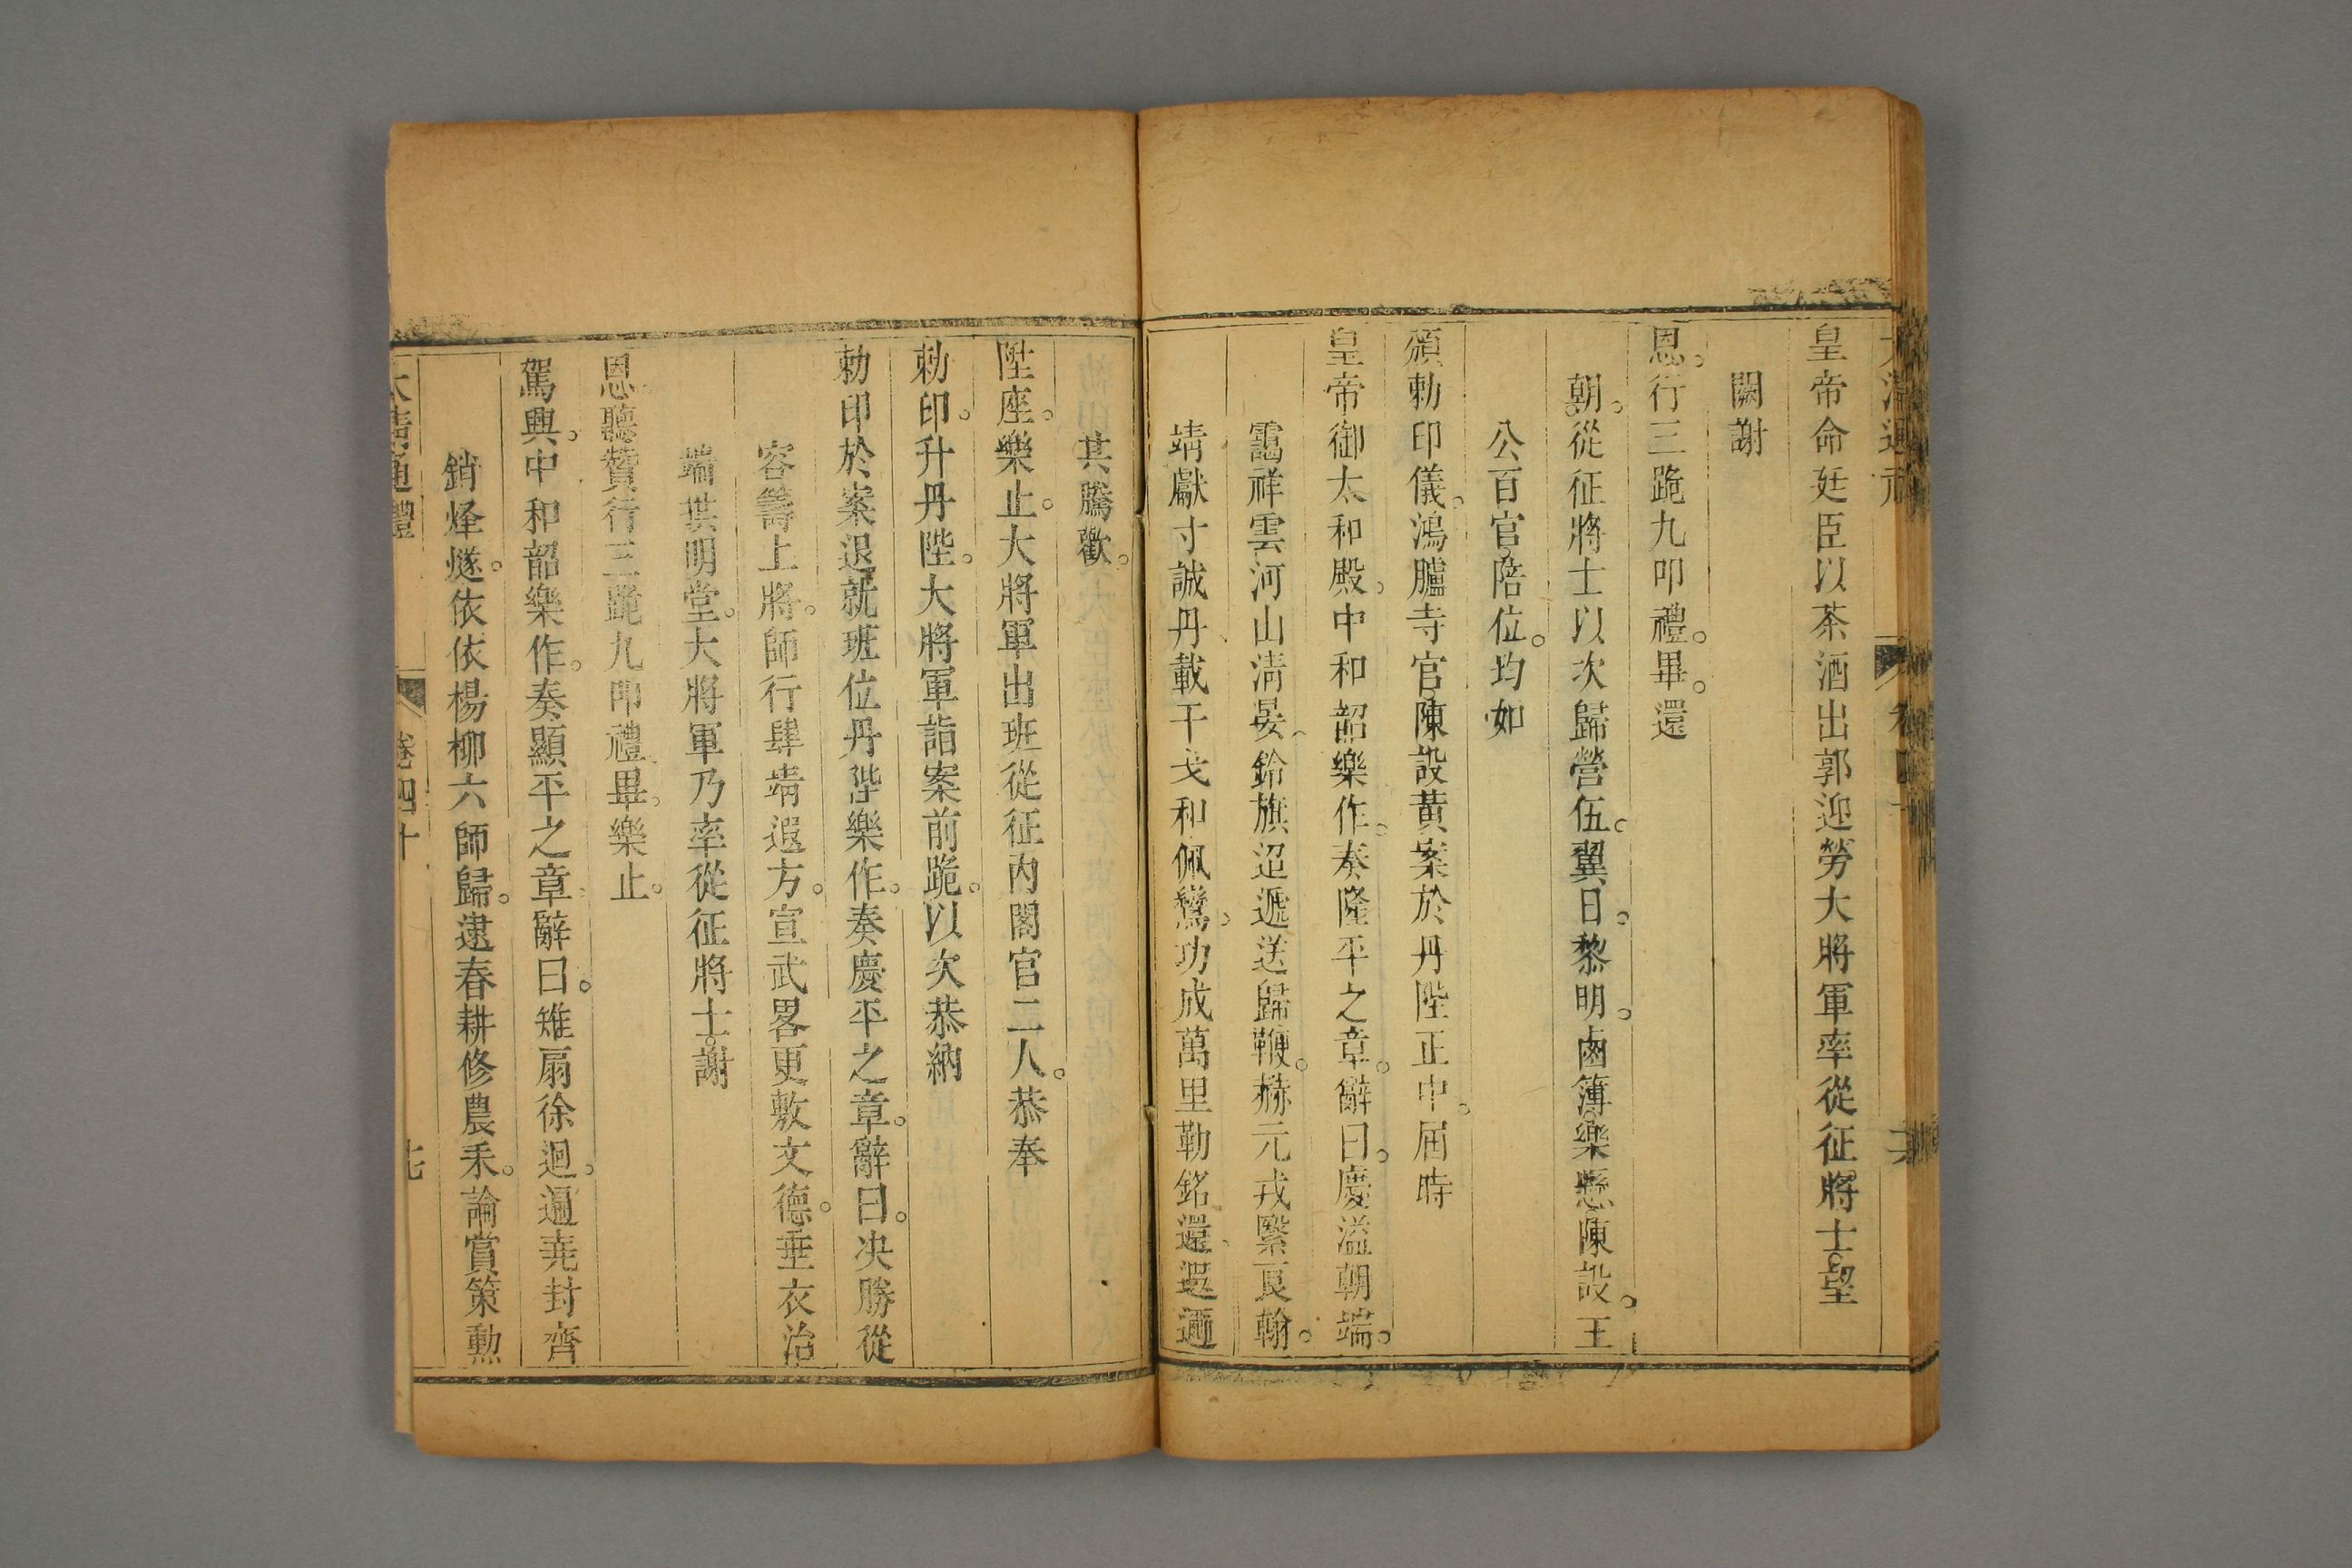 皇帝命廷臣以茶酒出郭迎勞大將軍率從征將士望
闕謝
恩。行三跪九叩禮。畢。還
朝。從征將士以次歸營伍。翼日。黎明。鹵簿樂懸陳設。王
公百官陪位。均如
頒勅印儀。鴻臚寺官陳設黃案於丹陛正中。屆時
皇帝御太和殿。中和韶樂作。奏隆平之章。辭曰。慶溢朝端。
靄祥雲河山清晏、鈴旗迢遞送歸鞭。赫元戎緊良翰。
靖獻寸誠丹載干戈和佩鸞。功成萬里勒銘還、遐邇
其騰歡。
陞座。樂止。大將軍出班從征內閣官二人。恭奉
勅印。升丹陛。大將軍詣案前跪。以次恭納
勅印於案退就班位丹陛樂作。奏慶平之章。辭曰。决勝從
容籌上將。師行肆靖遐方。宣武畧更敷文德。垂衣治
端拱明堂。大將軍乃率從征將士。謝
恩。聽贊行三跪九叩禮。畢。樂止。
駕興。中和韶樂作。奏顯平之章辭曰。雉扇徐迴。遍堯封齊
銷烽燧。依依楊柳六師歸。逮春耕修農禾。論賞策勲
大清通禮
卷四十
七